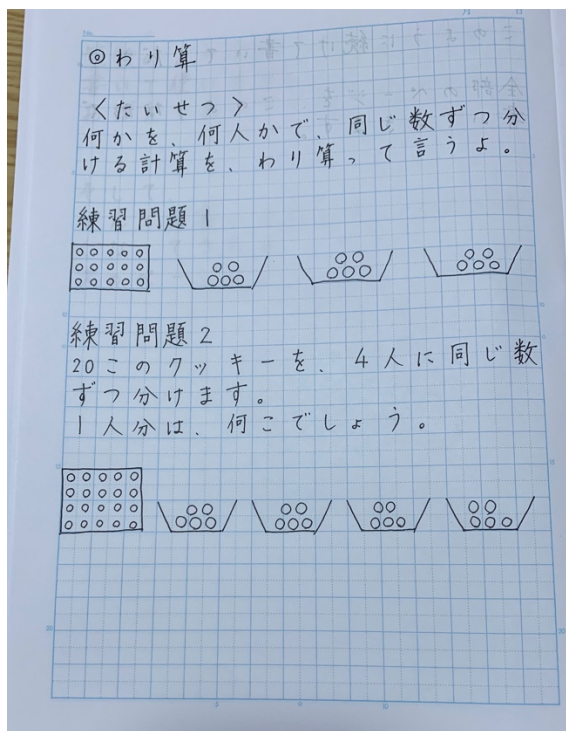 ◎わり算
＜たいせつ＞
何かを、何人かで、同じ数ずつ分
ける計算を、わり算って言うよ。
練習問題1
練習問題2
20このクッキーを、4人に同じ数
ずつ分けます。
1人分は、何こでしょう。